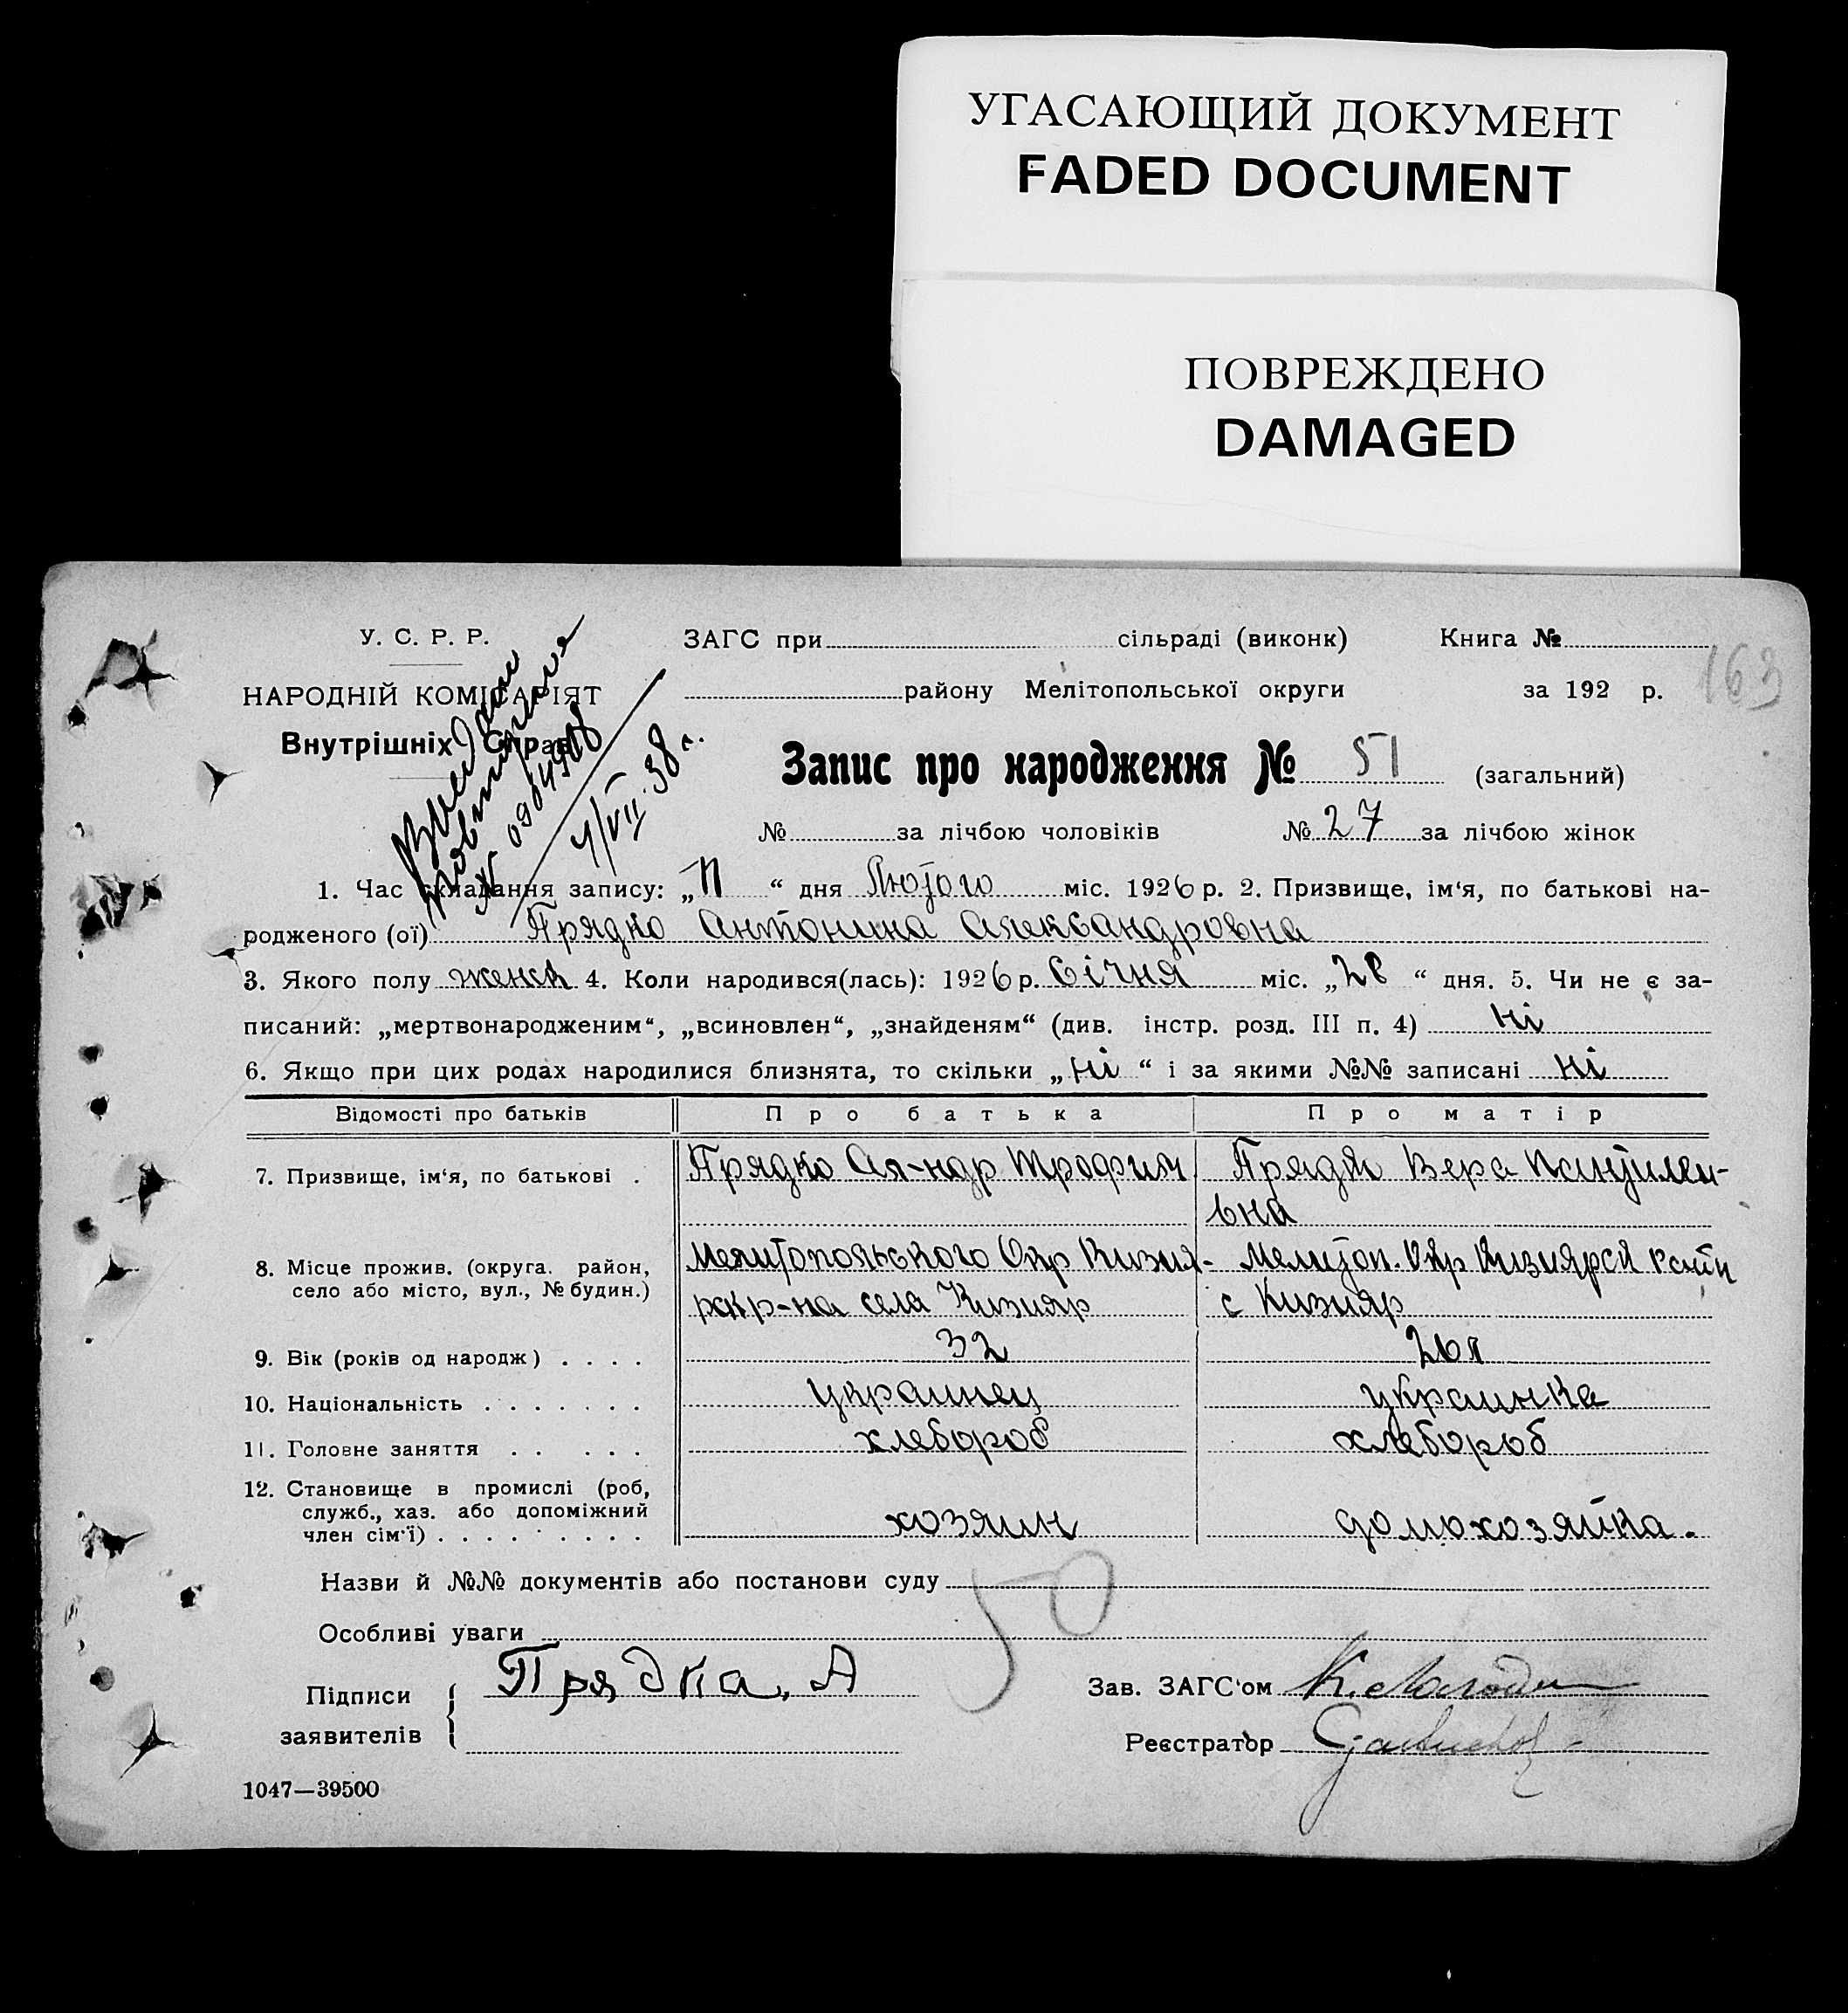 УГАСАЮЩИЙ ДОКУМЕНТ
FADED DOCUMENT
ПОВРЕЖДЕНО
DAMAGED
163
У. С. Р. Р.
НАРОДНІЙ КОМІСАРІЯТ
Внутрішніх Справ
ЗАГС при сільраді (виконк) Книга №
району Мелітопольської округи за 192 р.
Запис про народження № 51 (загальний)
№ за лічбою чоловіків № 27 за лічбою жінок
1. Час складання запису: „11 “ дня Лютого міс. 1926 р. 2. Призвище, ім‘я, по батькові на-
родженого (ої) Прядко Антонина Александровна
3. Якого полу женск 4. Коли народився(лась): 1926 р. Січня міс. „28 “ дня. 5. Чи не є за-
писаний: „мертвонародженим“, „всиновлен“, „знайденям“ (див. інстр. розд. III п. 4) ні
6. Якщо при цих родах народилися близнята, то скільки „ні “ і за якими №№ записані ні
Відомості про батьків Про батька Про матір
7. Призвище, ім‘я, по батькові . Прядко Ал-ндр Трофим Прядко Вера
вна
8. Місце прожив. (округа. район, Мелитопольского Окр Кизия- Мелитоп. Окр
село або місто, вул., № будин.) рск р-на села Кизияр с Кизияр
9. Вік (років од народж) . . . . 32 26 л
10. Національність . . . . . . . украинец украинка
11. Головне заняття . . . . . хлебороб хлебороб
12. Становище в промислі (роб,
служб., хаз. або допоміжний
член сім‘ї) . . . . . . . . . хозяин домохозяйка.
Назви й №№ документів або постанови суду
Особливі уваги
50
Підписи Прядка, А
заявителів
Зав. ЗАГС‘ом
Реєстратор
1047—39500
4/VII 38 г.